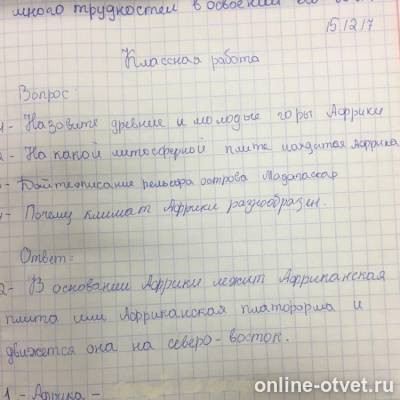 много трудностей в освоении
15.12.17
Классная работа
Вопрос:
1- Назовите древние и молодые горы Африки
2- На какой литосферной плите находится Африка
3- Дайте описание рельефа острова Мадагаскар
4- Почему климат Африки разнообразен.
Ответ:
2- В основании Африки лежит Африканская
плита или Африканская платформа и
движется она на северо-восток.
1 - Африка -
online-otvet.ru